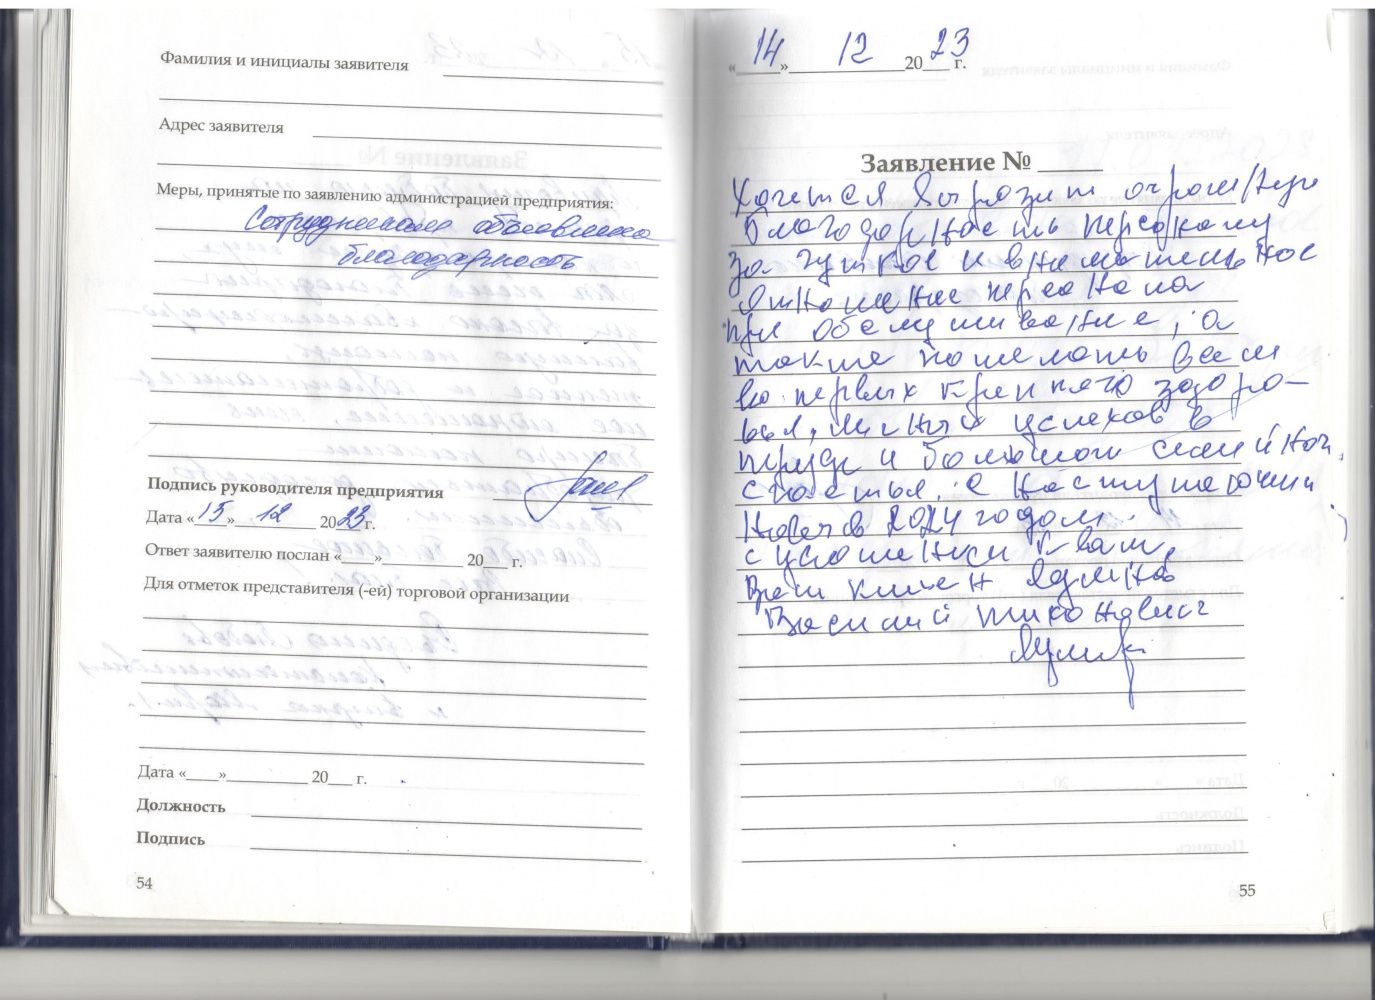 Фамилия и инициалы заявителя
Адрес заявителя
Меры, принятые по заявлению администрацией предприятия:
Сотрудникам объявлена
благодарность
Подпись руководителя предприятия
Дата «15» 12 2023г.
Ответ заявителю послан «____»__________ 20___ г.
Для отметок представителя (-ей) торговой организации
Дата «____»__________ 20___ г.
Должность
Подпись
54
«14» 12 2023 г.
Заявление № ______
Хочется выразит огромную
благодарность персоналу
за чуткое и внимательное
отношение персонала
при обслуживание, а
также пожелать всем
во первых крепкого здоро-
вья, личных успехов в
труде и большой семейной
счастья, с наступающим
Новым 2024 годом.
с уважением к вам,
Ваш клиент
Василий Тихонович
55